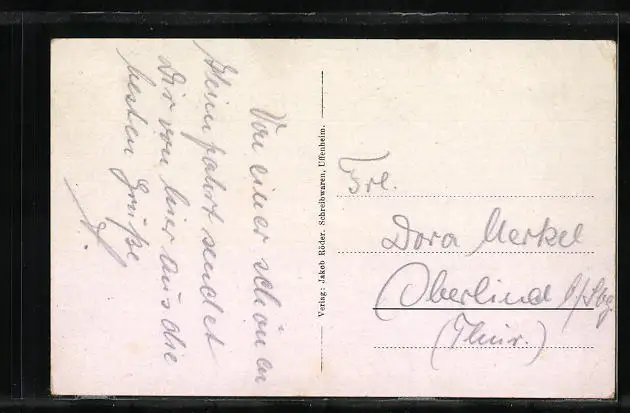 Von einer schönen
Heimfahrt sendet
Dir von hier aus die
besten Grüße
Verlag: Jakob Röder, Schreibwaren, Uffenheim.
Frl.
Dora Merkel
Oberlind b/Sbg
(Thür.)